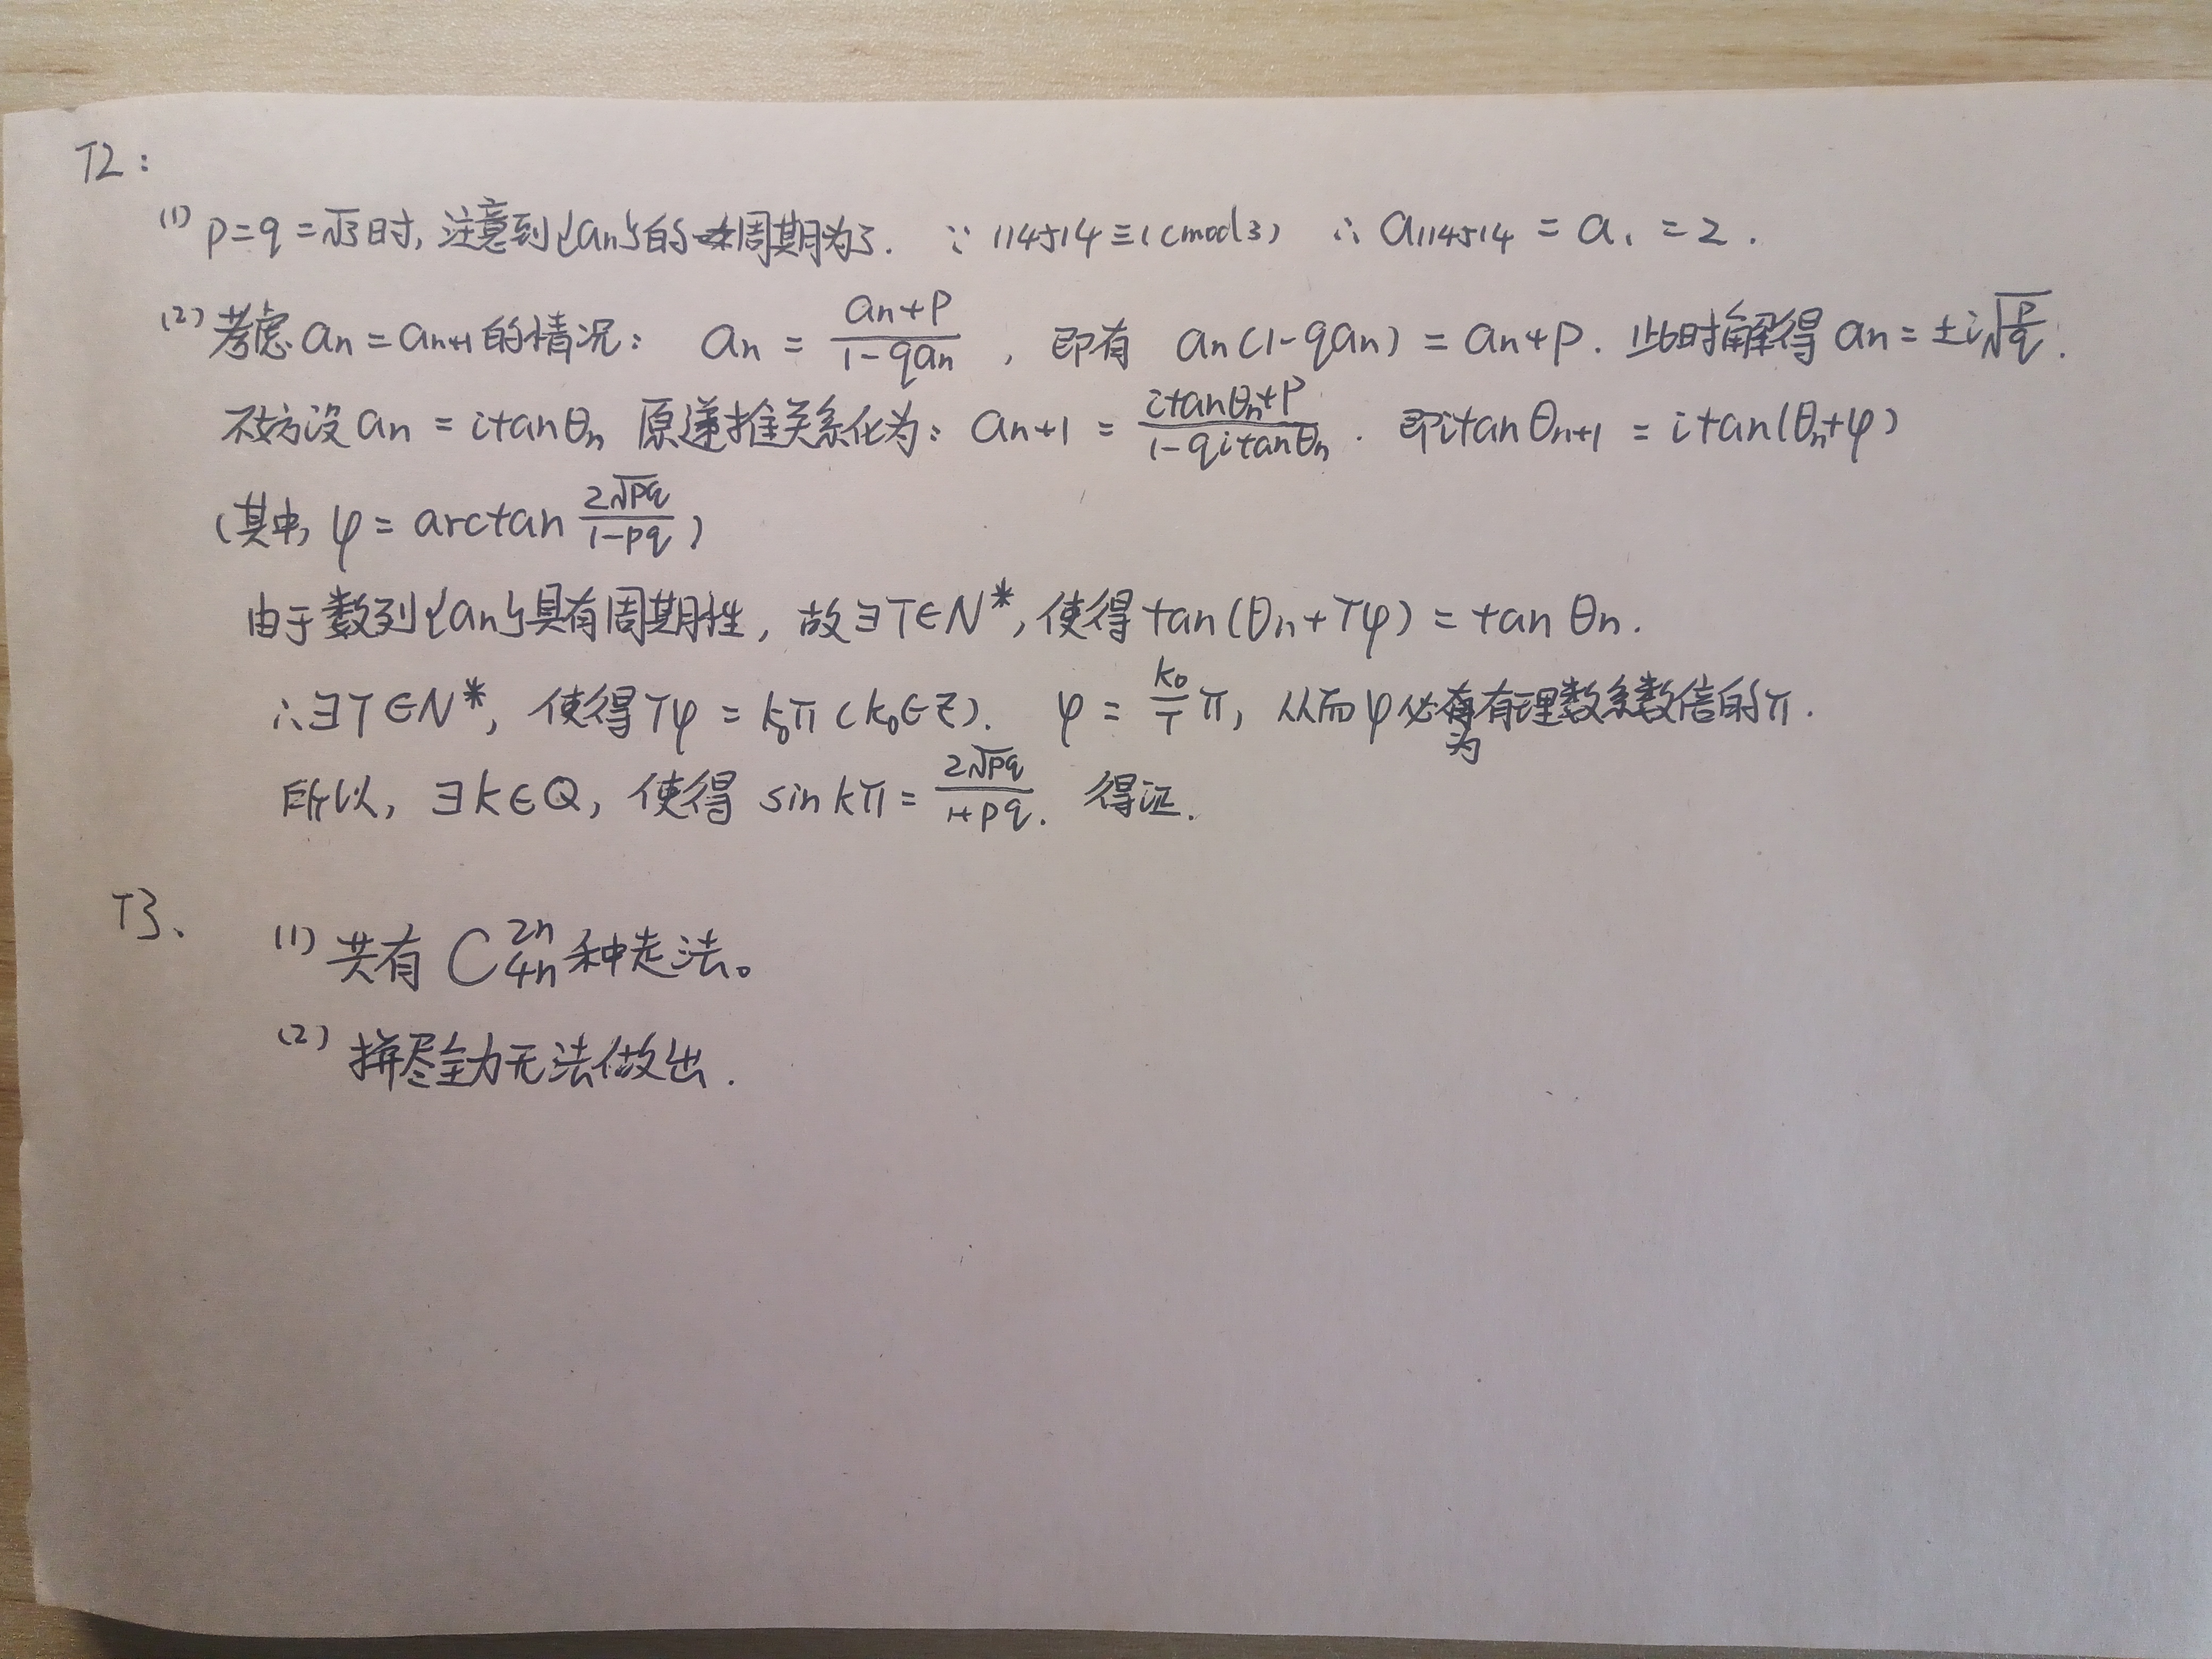 T2:
(1) p=q=√3时, 注意到{an}的周期为3. ∵ 114514≡1(mod3) ∴ a114514 = a1 = 2.
(2) 考虑 an=an+1的情况: an = (an+p)/(1-qan), 即有 an(1-qan) = an+p. 此时解得 an = ±i√(p/q).
不妨设 an = itanθn 原递推关系化为: an+1 = (itanθn+p)/(1-qitanθn). 即itanθn+1 = itan(θn+φ)
(其中, φ = arctan 2√pq/(1-pq))
由于数列{an}具有周期性, 故∃T∈N*, 使得 tan(θn+Tφ) = tan θn.
∴∃T∈N*, 使得Tφ = k0π (k0∈Z). φ = (k0/T)π, 从而φ必为有理数系数倍的π.
所以, ∃k∈Q, 使得 sin kπ = 2√pq/(1+pq). 得证.
T3、
(1) 共有 C_{4n}^{2n} 种走法。
(2) 拼尽全力无法做出.